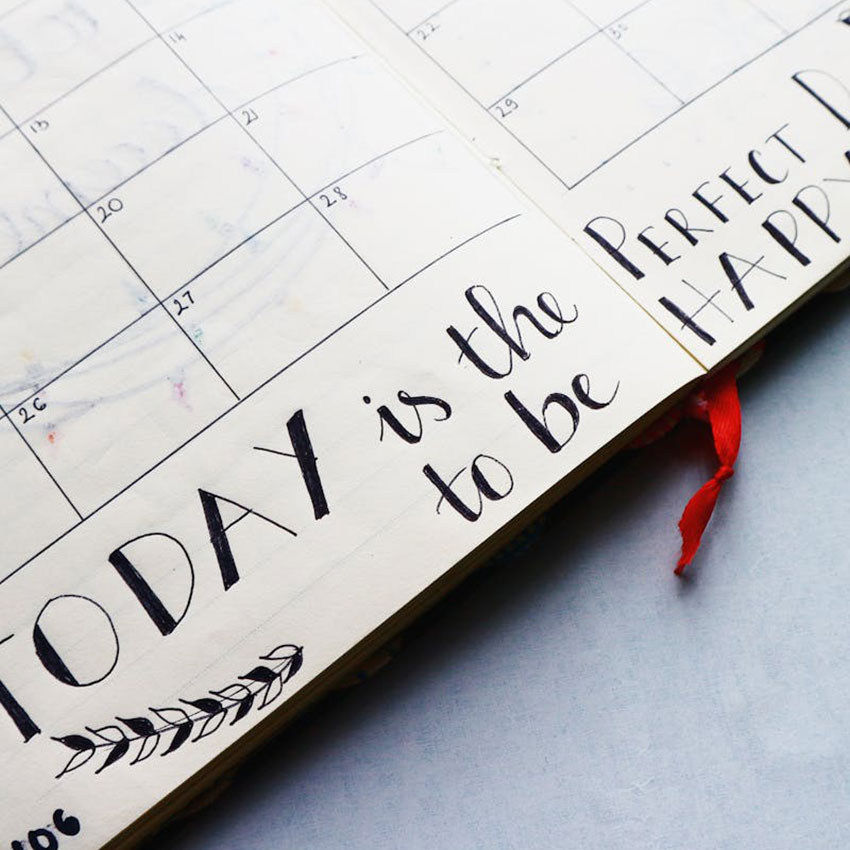 14
13
21
20
28
27
26
22
30
29
TODAY is the PERFECT
to be HAPPY
06